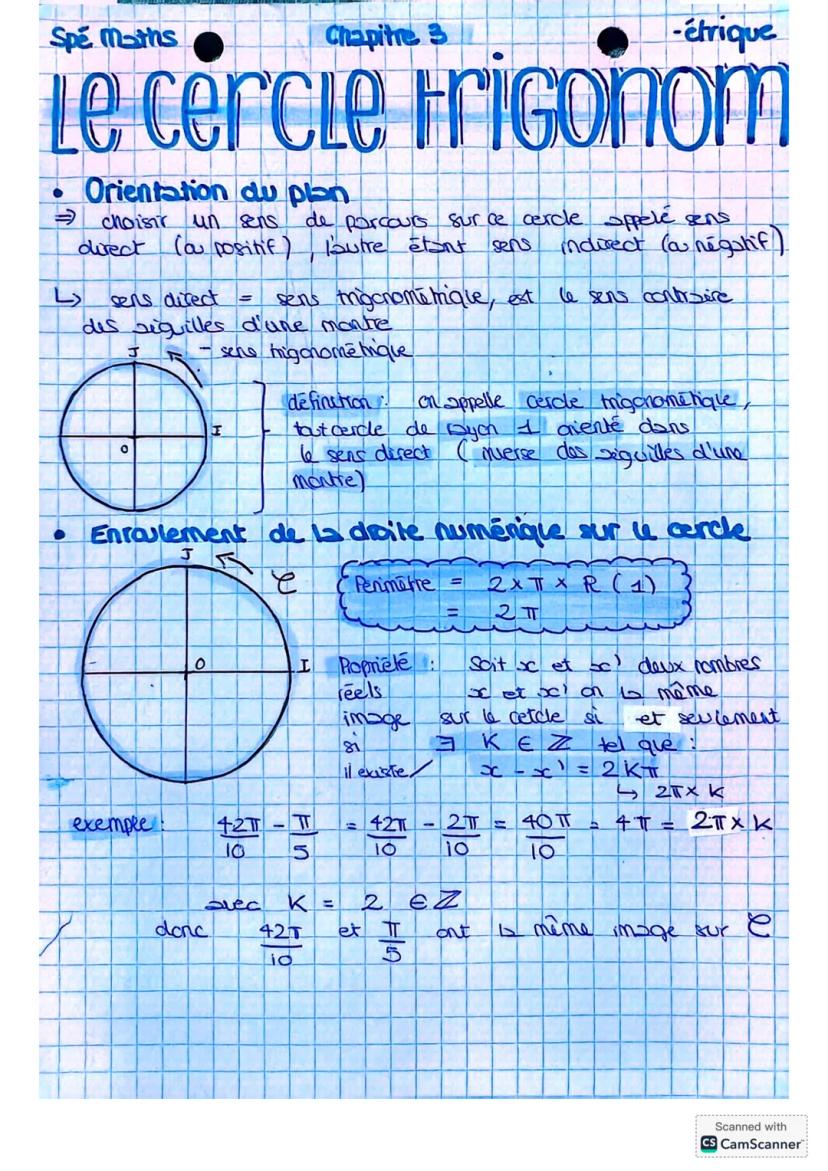 Spé Maths
Chapitre 3
-étrique
Le cercle trigonom
• Orientation du plan
⇒ choisir un sens de parcours sur ce cercle appelé sens
direct (ou positif), l'autre étant sens indirect (ou négatif)
↳ sens direct = sens trigonométrique, est le sens contraire
des aiguilles d'une montre
J
- sens trigonométrique
I
O
définition : on appelle cercle trigonométrique,
tout cercle de rayon 1 orienté dans
le sens direct (inverse des aiguilles d'une
montre)
• Enroulement de la droite numérique sur le cercle
J
C
O
I
Périmètre = 2 x π x R (1)
= 2π
Propriété : Soit x et x' deux nombres
réels x et x' on la même
image sur le cercle si et seulement
si ∃ K ∈ Z tel que :
il existe / x - x' = 2Kπ
↳ 2π x K
exemple : 42π/10 - π/5 = 42π/10 - 2π/10 = 40π/10 = 4π = 2π x K
avec K = 2 ∈ Z
donc 42π/10 et π/5 ont la même image sur C
Scanned with
CS CamScanner